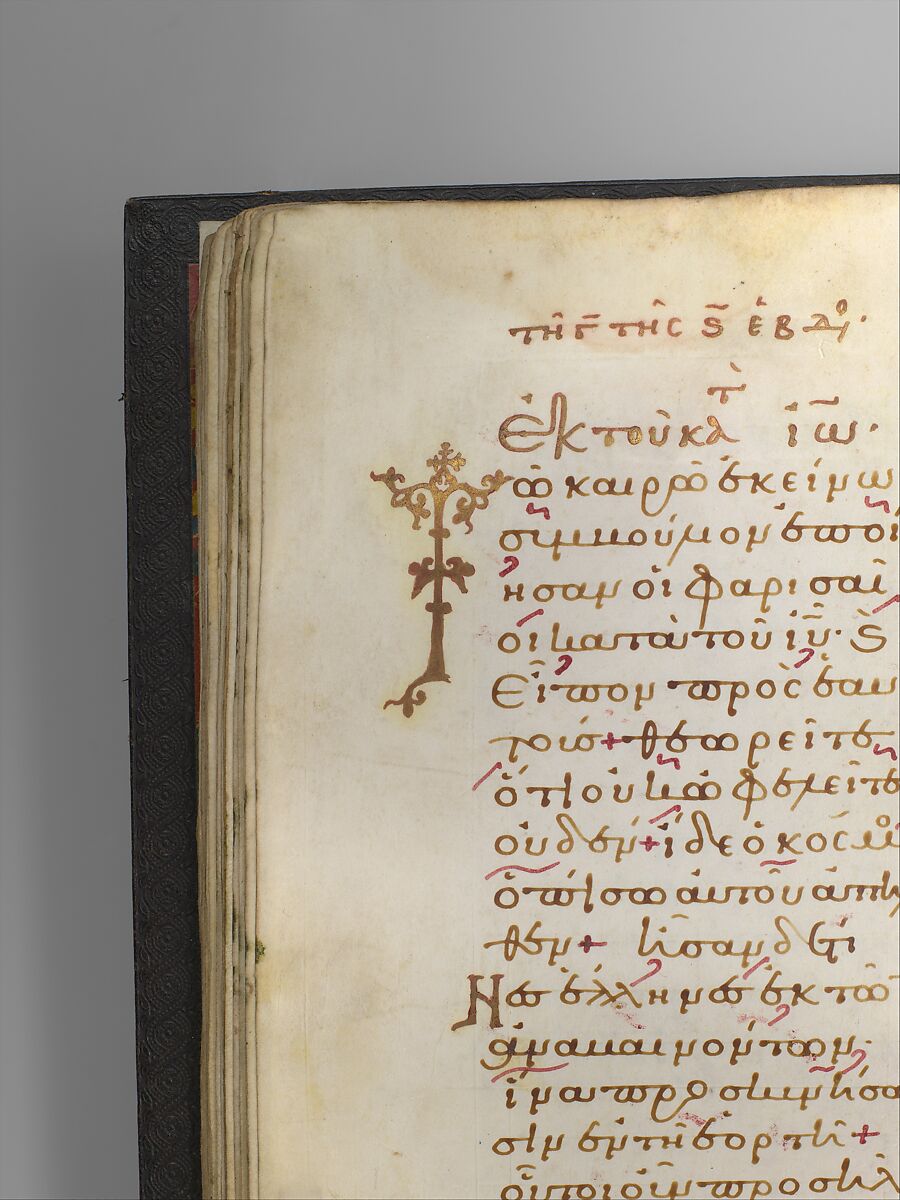 τῆ γ̄ τῆς ϛ̄ ἑβδο
Ἐκ τοῦ κατὰ ἰω̄·
Τῶ καιρῶ ἐκείνω
συμβούλιον ἐποί
ησαν οἱ φαρισαῖ
οι κατὰ τοῦ ιῡ· ϛ
Εἶπον πρὸς ἑαυ
τούς + θεωρεῖτε
ὅτι οὐκ ὠφελεῖτε
οὐδέν + ἴδε ὁ κόσμο
ὀπίσω αὐτοῦ ἀπῆλ
θεν + ἦσαν δέ τι
Νες ἕλληνες ἐκ τῶ
ἀναβαινόντων·
ἵνα προσκυνήσω
σιν ἐν τῆ ἑορτῆ +
οὗτοι οὖν προσῆλ